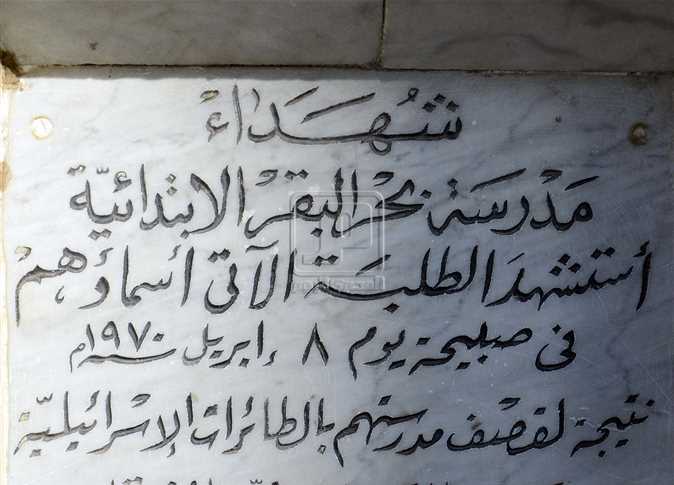 شُهَدَاءْ
مَدْرسَة بحْر البَقرْ الابتدائيّة
أستشهدَ الطلبَة الآتى أسماؤهمْ
فى صبيحة يوم ٨ إبريل سنة ١٩٧٠م
نتيجة لقصْف مدرستهم بالطائرات الإسْرائيليّة